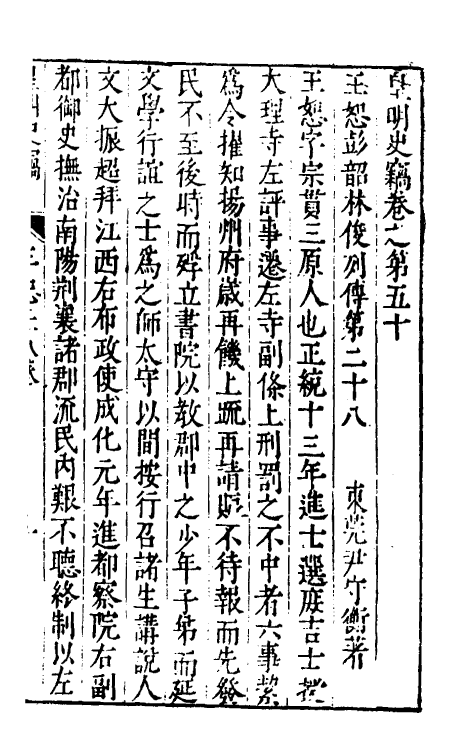 皇明史竊卷之第五十
王恕彭韶林俊列傳第二十八　東莞尹守衡著
王恕字宗貫三原人也正統十三年進士選庶吉士授
大理寺左評事遷左寺副條上刑罰之不中者六事
爲令擢知揚州府歲再饑上疏再請賑不待報而先發
民不至後時而殍立書院以教郡中之少年子弟而延
文學行誼之士爲之師太守以間按行召諸生講說人
文大振超拜江西右布政使成化元年進都察院右副
都御史撫治南陽荆襄諸郡流民內艱不聽終制以左
皇明史竊